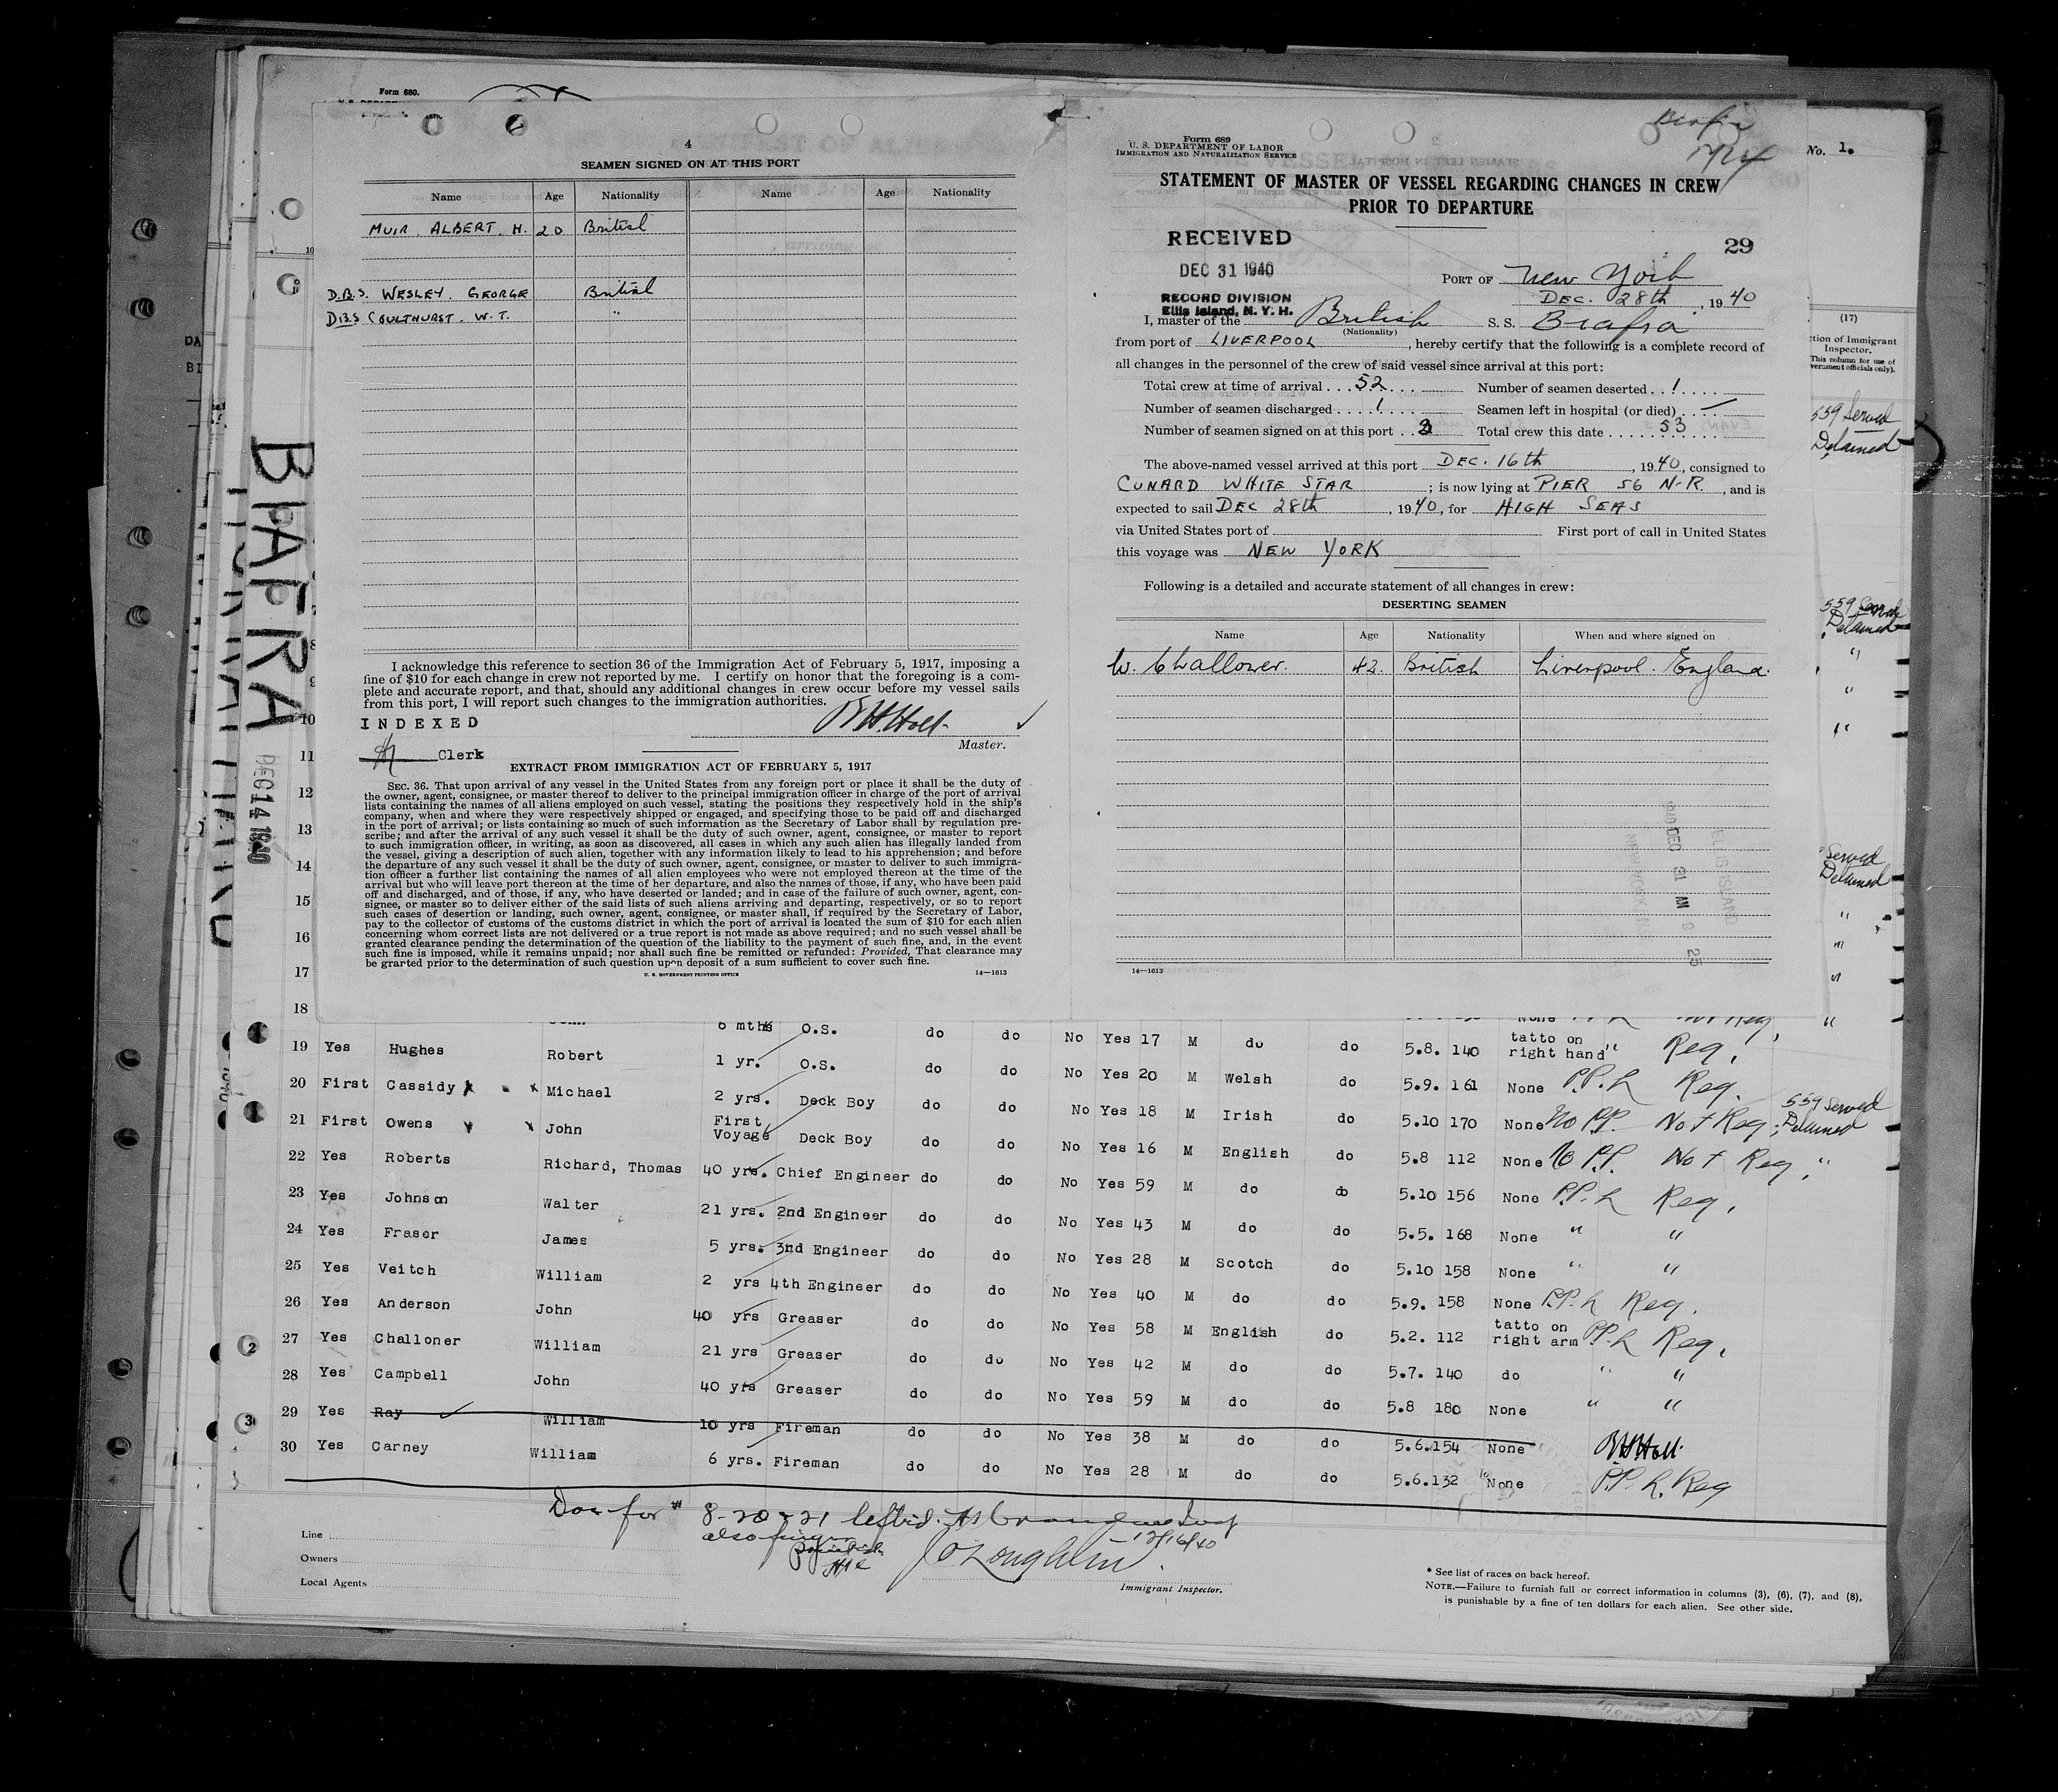 Form 680.
4
SEAMEN SIGNED ON AT THIS PORT
Name Age Nationality Name Age Nationality
MUIR. ALBERT. H. 20 British
D.B.S. WESLEY. GEORGE British
D.B.S COULTHURST. W.T. "
I acknowledge this reference to section 36 of the Immigration Act of February 5, 1917, imposing a
fine of $10 for each change in crew not reported by me. I certify on honor that the foregoing is a com-
plete and accurate report, and that, should any additional changes in crew occur before my vessel sails
from this port, I will report such changes to the immigration authorities.
INDEXED
Clerk
Master.
EXTRACT FROM IMMIGRATION ACT OF FEBRUARY 5, 1917
SEC. 36. That upon arrival of any vessel in the United States from any foreign port or place it shall be the duty of
the owner, agent, consignee, or master thereof to deliver to the principal immigration officer in charge of the port of arrival
lists containing the names of all aliens employed on such vessel, stating the positions they respectively hold in the ship's
company, when and where they were respectively shipped or engaged, and specifying those to be paid off and discharged
in the port of arrival; or lists containing so much of such information as the Secretary of Labor shall by regulation pre-
scribe; and after the arrival of any such vessel it shall be the duty of such owner, agent, consignee, or master to report
to such immigration officer, in writing, as soon as discovered, all cases in which any such alien has illegally landed from
the vessel, giving a description of such alien, together with any information likely to lead to his apprehension; and before
the departure of any such vessel it shall be the duty of such owner, agent, consignee, or master to deliver to such immigra-
tion officer a further list containing the names of all alien employees who were not employed thereon at the time of the
arrival but who will leave port thereon at the time of her departure, and also the names of those, if any, who have been paid
off and discharged, and of those, if any, who have deserted or landed; and in case of the failure of such owner, agent, con-
signee, or master so to deliver either of the said lists of such aliens arriving and departing, respectively, or so to report
such cases of desertion or landing, such owner, agent, consignee, or master shall, if required by the Secretary of Labor,
pay to the collector of customs of the customs district in which the port of arrival is located the sum of $10 for each alien
concerning whom correct lists are not delivered or a true report is not made as above required; and no such vessel shall be
granted clearance pending the determination of the question of the liability to the payment of such fine, and, in the event
such fine is imposed, while it remains unpaid; nor shall such fine be remitted or refunded: Provided, That clearance may
be granted prior to the determination of such question upon deposit of a sum sufficient to cover such fine.
U. S. GOVERNMENT PRINTING OFFICE 14—1613
Form 689
U. S. DEPARTMENT OF LABOR
IMMIGRATION AND NATURALIZATION SERVICE
Biafra
STATEMENT OF MASTER OF VESSEL REGARDING CHANGES IN CREW
PRIOR TO DEPARTURE
RECEIVED
DEC 31 1940
RECORD DIVISION
Ellis Island, N. Y. H.
29
PORT OF New York
DEC. 28th, 1940
I, master of the British S. S. Biafra
(Nationality)
from port of LIVERPOOL, hereby certify that the following is a complete record of
all changes in the personnel of the crew of said vessel since arrival at this port:
Total crew at time of arrival . . . 52 . . . Number of seamen deserted . . 1
Number of seamen discharged . . . . 1 . . . . Seamen left in hospital (or died) . . —
Number of seamen signed on at this port . . 3 Total crew this date . . . . . 53
The above-named vessel arrived at this port DEC. 16th, 1940, consigned to
CUNARD WHITE STAR; is now lying at PIER 56 N.R., and is
expected to sail DEC 28th, 1940, for HIGH SEAS
via United States port of First port of call in United States
this voyage was NEW YORK
Following is a detailed and accurate statement of all changes in crew:
DESERTING SEAMEN
Name Age Nationality When and where signed on
W. Challoner. 42. British Liverpool. England.
14—1613
No. 1.
(17)
ction of Immigrant
Inspector.
This column for use of
vernment officials only).
559 Served
Detained
559 Served
Detained
"
"
"
Served
Detained
"
"
"
"
BIAFRA
DEC 14 1940
10
11
12
13
14
15
16
17
18 6 mths O.S. do do No Yes 17 M do do
19 Yes Hughes Robert 1 yr. O.S. do do No Yes 20 M Welsh do 5.8. 140 tatto on right hand " Req.
20 First Cassidy x - x Michael 2 yrs. Deck Boy do do No Yes 18 M Irish do 5.9. 161 None P.P. L Req.
21 First Owens x x John First Voyage Deck Boy do do No Yes 16 M English do 5.10 170 None No P.P. Not Req; 559 Served Detained
22 Yes Roberts Richard, Thomas 40 yrs. Chief Engineer do do No Yes 59 M do do 5.8 112 None No P.P. Not Req, "
23 Yes Johnson Walter 21 yrs. 2nd Engineer do do No Yes 43 M do do 5.10 156 None P.P. L Req.
24 Yes Fraser James 5 yrs. 3nd Engineer do do No Yes 28 M Scotch do 5.5. 168 None " "
25 Yes Veitch William 2 yrs 4th Engineer do do No Yes 40 M do do 5.10 158 None " "
26 Yes Anderson John 40 yrs Greaser do do No Yes 58 M English do 5.9. 158 None P.P. L Req.
27 Yes Challoner William 21 yrs Greaser do do No Yes 42 M do do 5.2. 112 tatto on right arm P.P. L Req.
28 Yes Campbell John 40 yrs Greaser do do No Yes 59 M do do 5.7. 140 do " "
29 Yes Ray William 10 yrs Fireman do do No Yes 38 M do do 5.8 180 None " "
30 Yes Carney William 6 yrs. Fireman do do No Yes 28 M do do 5.6.154 None
5.6.132 None P.P. L. Req
8-20-21
12/16/40
Line
Owners
Local Agents
Immigrant Inspector.
* See list of races on back hereof.
NOTE.—Failure to furnish full or correct information in columns (3), (6), (7), and (8),
is punishable by a fine of ten dollars for each alien. See other side.